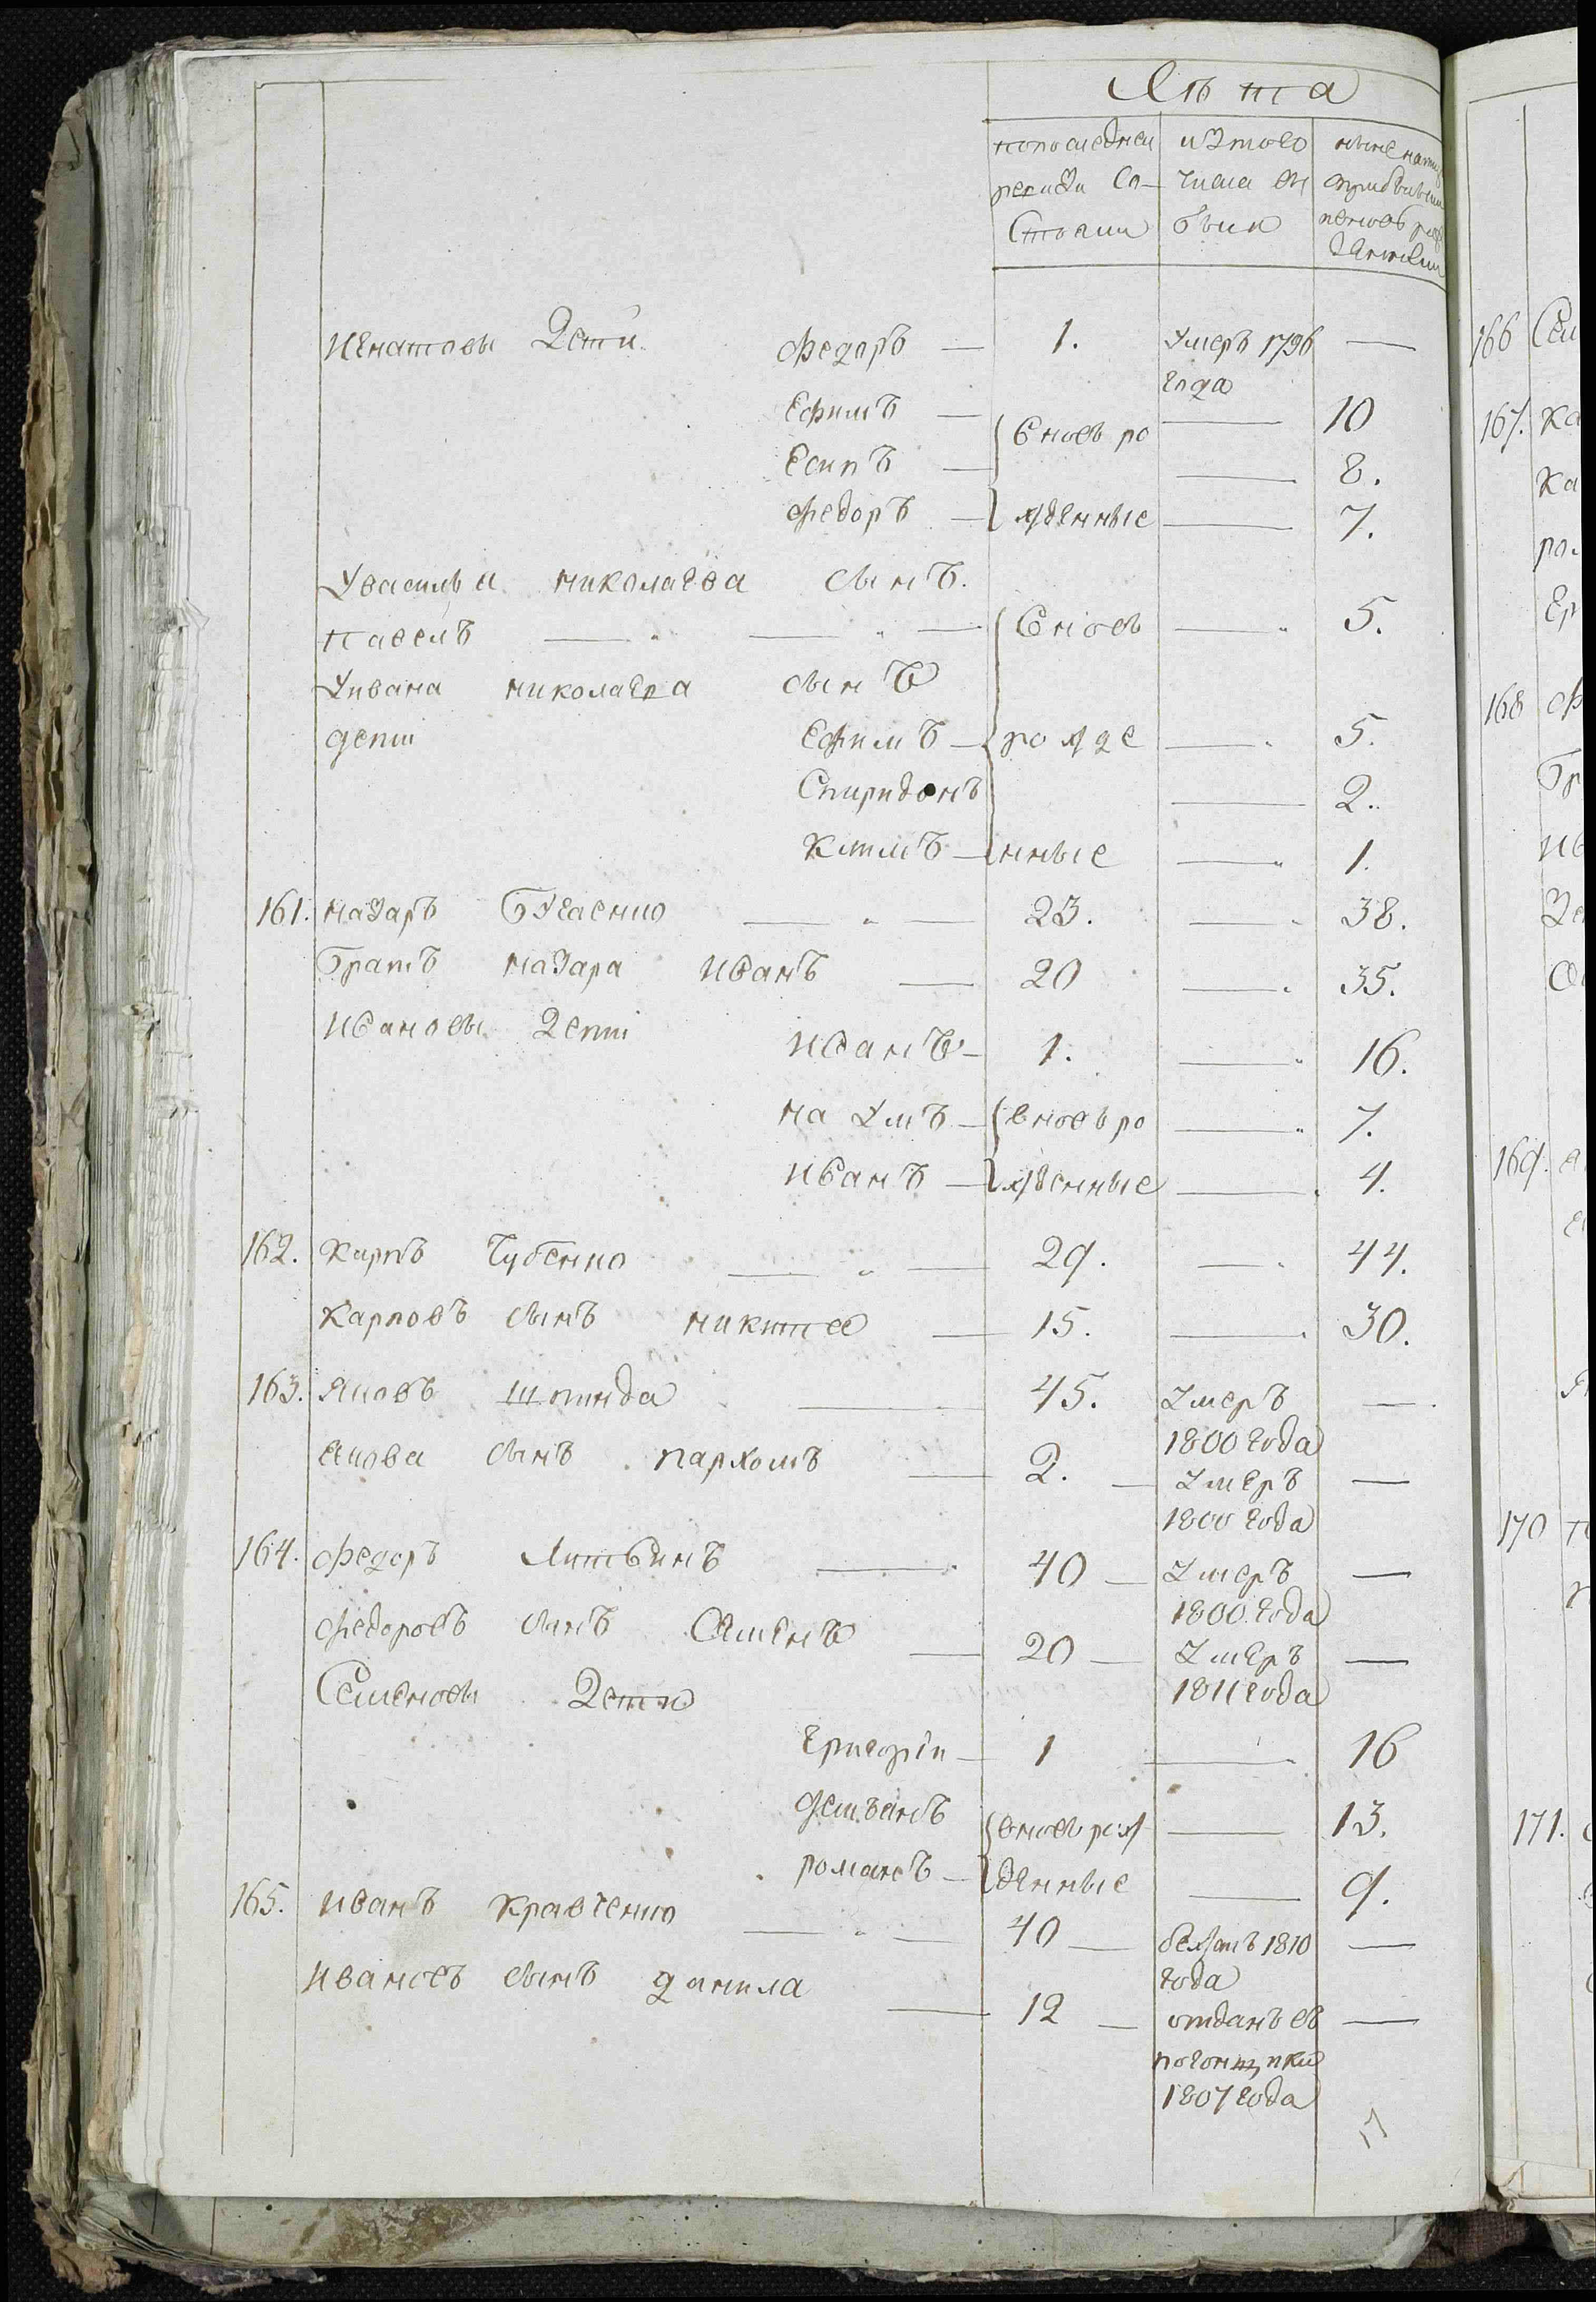 Лѣта
попоследней изтого ныне
ревизи Со- числа вы
Стояли было
Игнатовы Дети Федоръ — 1. Умеръ 1796 —
года
Ефимъ — вновь ро — 10
Есипъ — — 8.
Федоръ — жденные — 7.
Увасилья николаева сынъ.
павелъ — — — вновь — 5.
Уивана николаева сынъ
дети Ефимъ — рожде — 5.
Спиридонъ — 2.
Климъ — нные — 1.
161. назаръ — — 23. — 38.
братъ назара иванъ — 20 — 35.
ивановы Дети
иванъ — 1. — 16.
наумъ — вновь ро — 7.
иванъ — жденные — 4.
162. Карпъ Чубенко — — 29. — 44.
Карповъ сынъ никита — 15. — 30.
163. Яковъ шпинда — 45. Умеръ —
1800 года
Якова сынъ пархомъ — 2. — Умеръ —
1800 года
164. Федоръ Литвинъ — 40 — Умеръ —
1800 года
Федоровъ сынъ Семенъ — 20 — Умеръ —
1811 года
Семеновы Дети
григорiи — 1 — 16
демьянъ вновь рож — 13.
романъ — денные — 9.
165. иванъ Кравченко — — 40 — бежалъ 1810 —
года
ивановъ сынъ данила — 12 — отданъ въ —
погонщики
1807 года
17
166
167. Ка
Ка
168
169.
170
171.